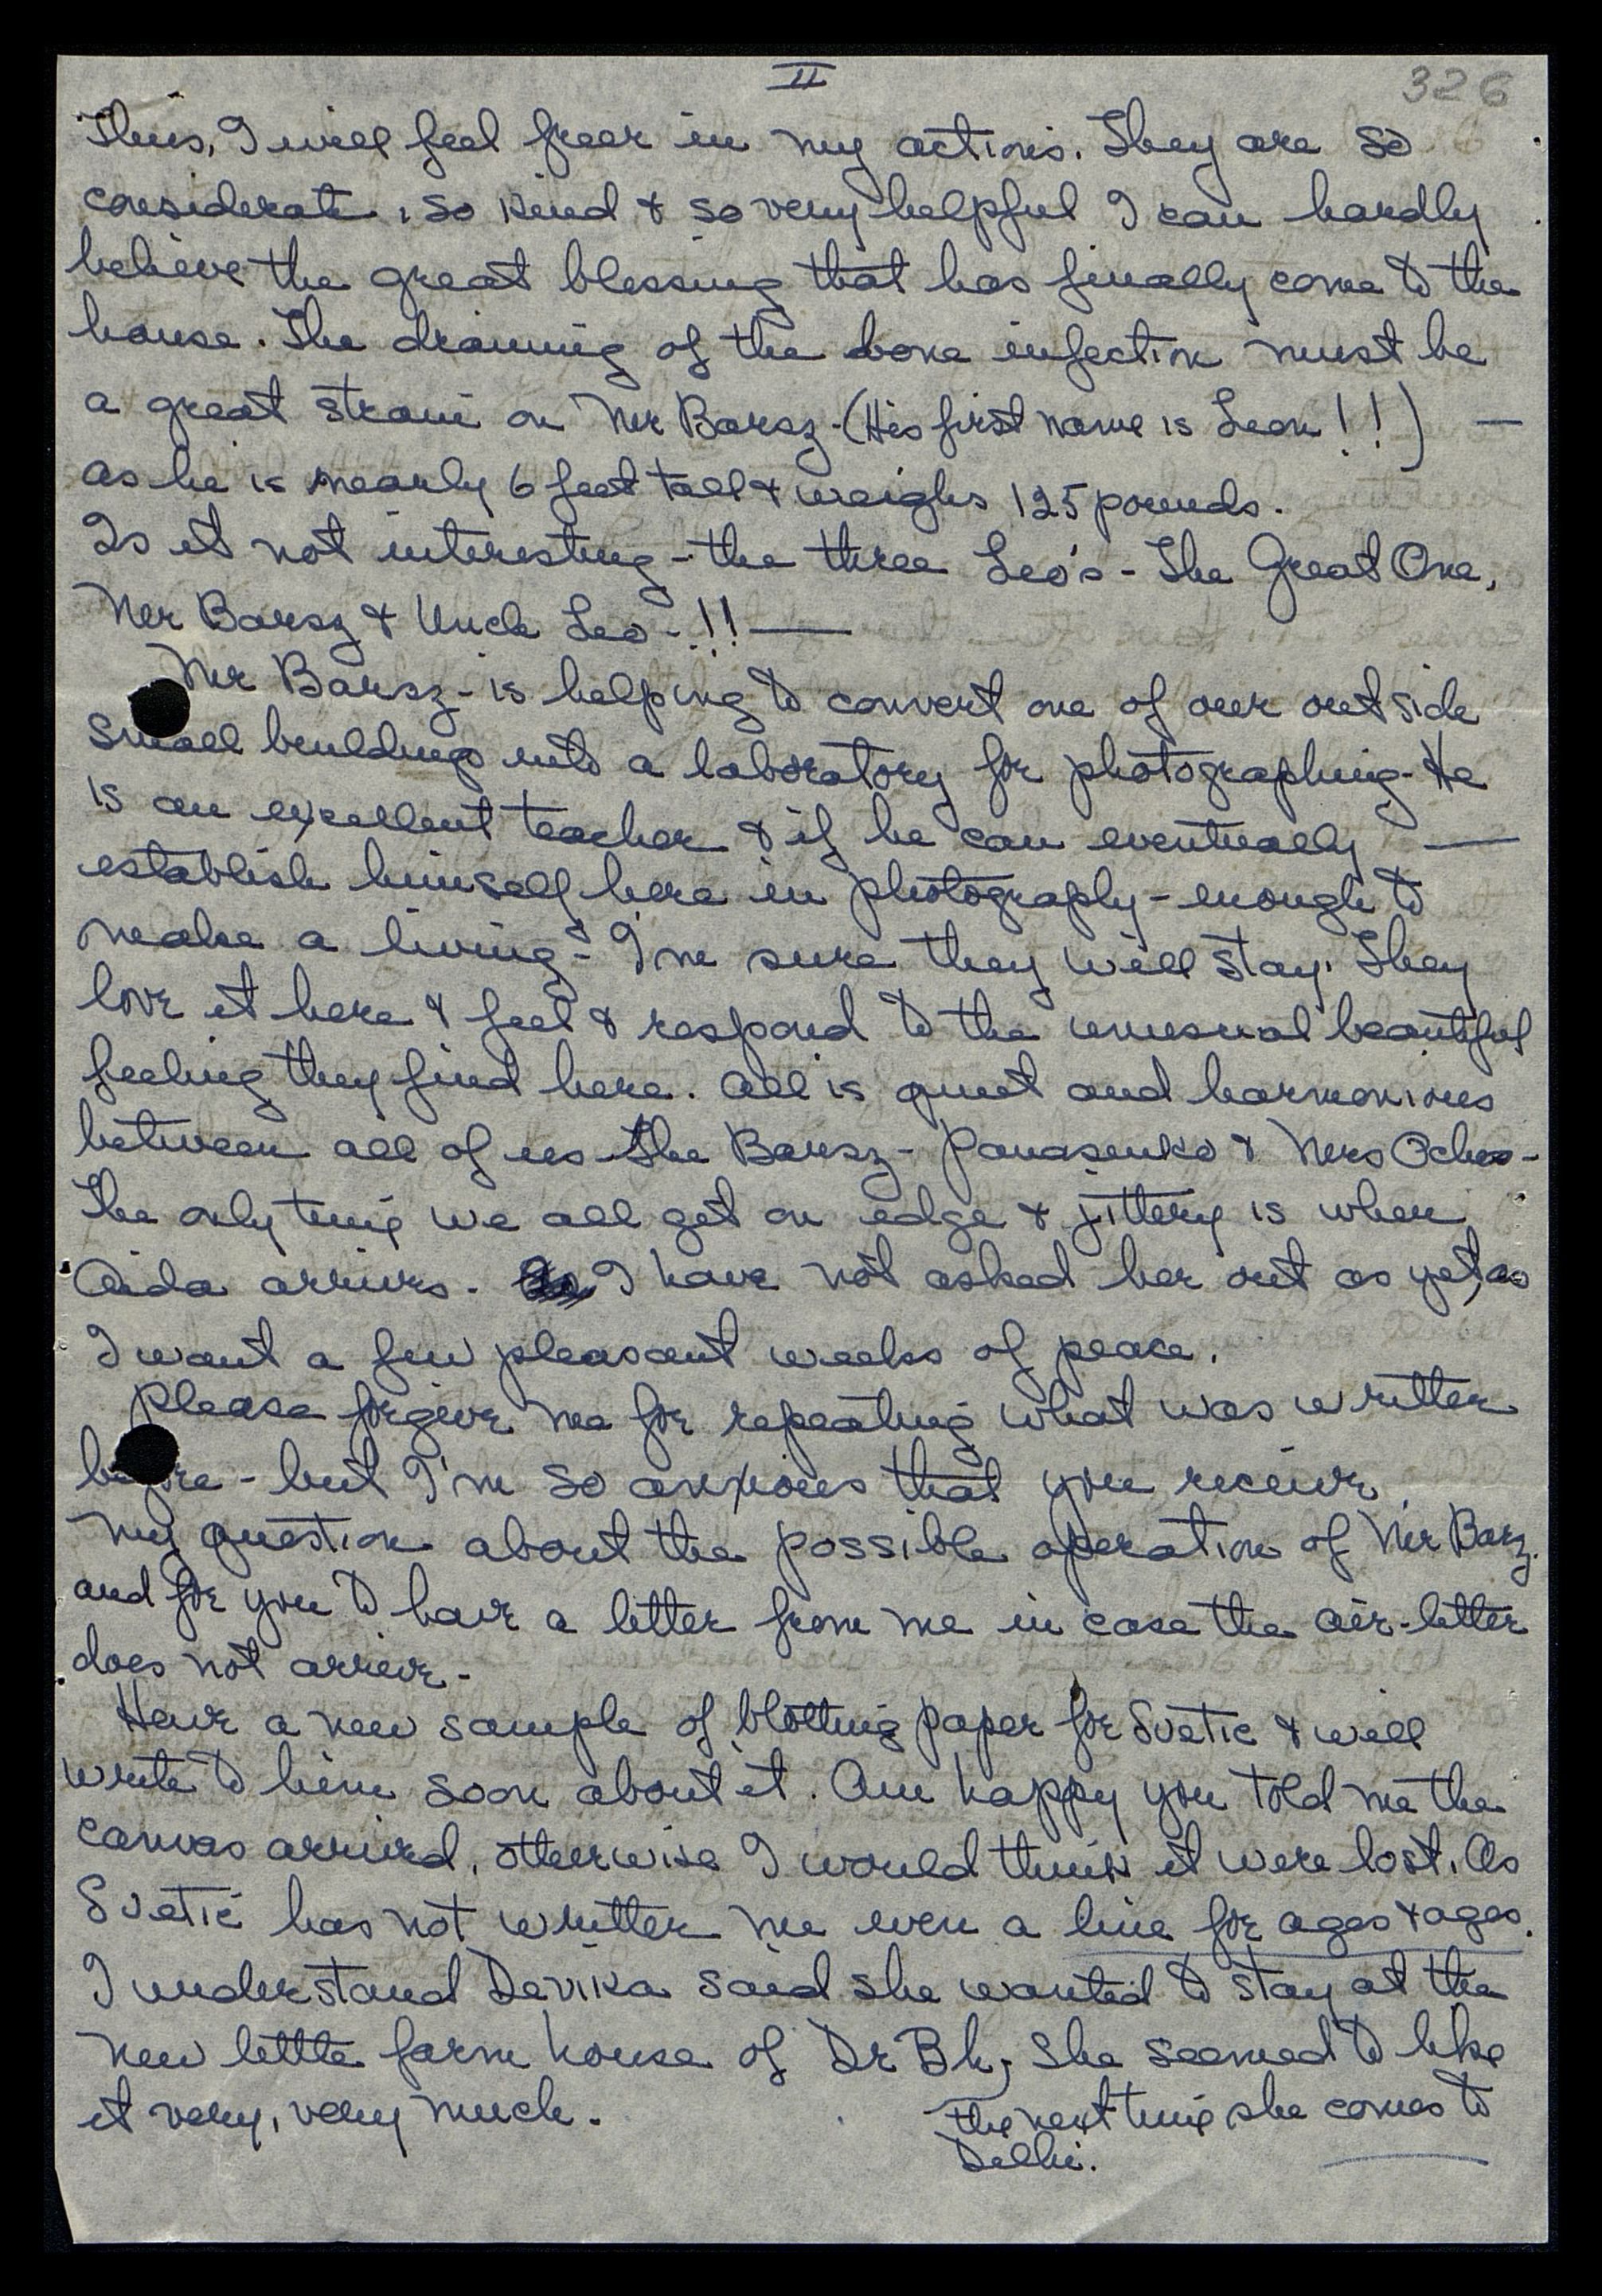 II
326
Thus, I will feel freer in my actions. They are so
considerate, so kind & so very helpful I can hardly
believe the great blessing that has finally come to the
house. The draining of the bone infection must be
a great strain on Mr Barsz-(His first name is Leon!!) —
as he is nearly 6 feet tall & weighs 125 pounds.
Is it not interesting - the three Leo's - The Great One,
Mr Barsz & Uncle Leo-!! —
Mr Barsz - is helping to convert one of our outside
small buildings into a laboratory for photographing. He
is an excellent teacher & if he can eventually —
establish himself here in photography - enough to
make a living - I'm sure they will stay. They
love it here & feel & respond to the unusual beautiful
feeling they find here. All is quiet and harmonious
between all of us the Barsz - Panasenko & Mrs Ochoa-
The only time we all get on edge & jittery is when
Aida arrives. I have not asked her out as yet, as
I want a few pleasant weeks of peace.
Please forgive me for repeating what was written
before - but I'm so anxious that you receive
my question about the possible operation of Mr Barz.
and for you to have a letter from me in case the air-letter
does not arrive -
Have a new sample of blotting paper for Svetic & will
write to him soon about it. Am happy you told me the
canvas arrived, otherwise I would think it were lost. As
Svetic has not written me even a line for ages & ages.
I understand Devika said she wanted to stay at the
new little farm house of Dr Bh; She seemed to like
it very, very much.
the next time she comes to
Delhi.